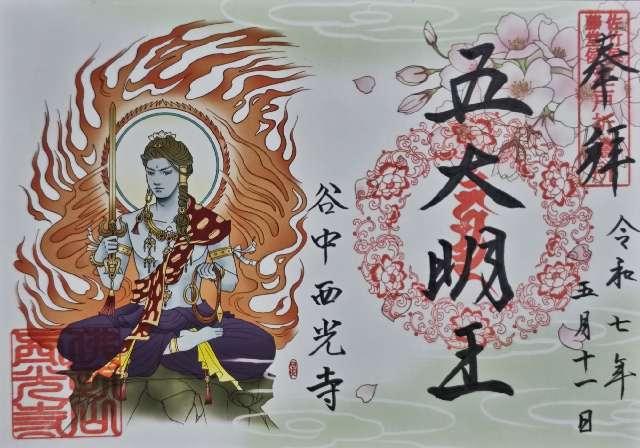 奉拝
令和七年
五月十一日
五大明王
谷中西光寺